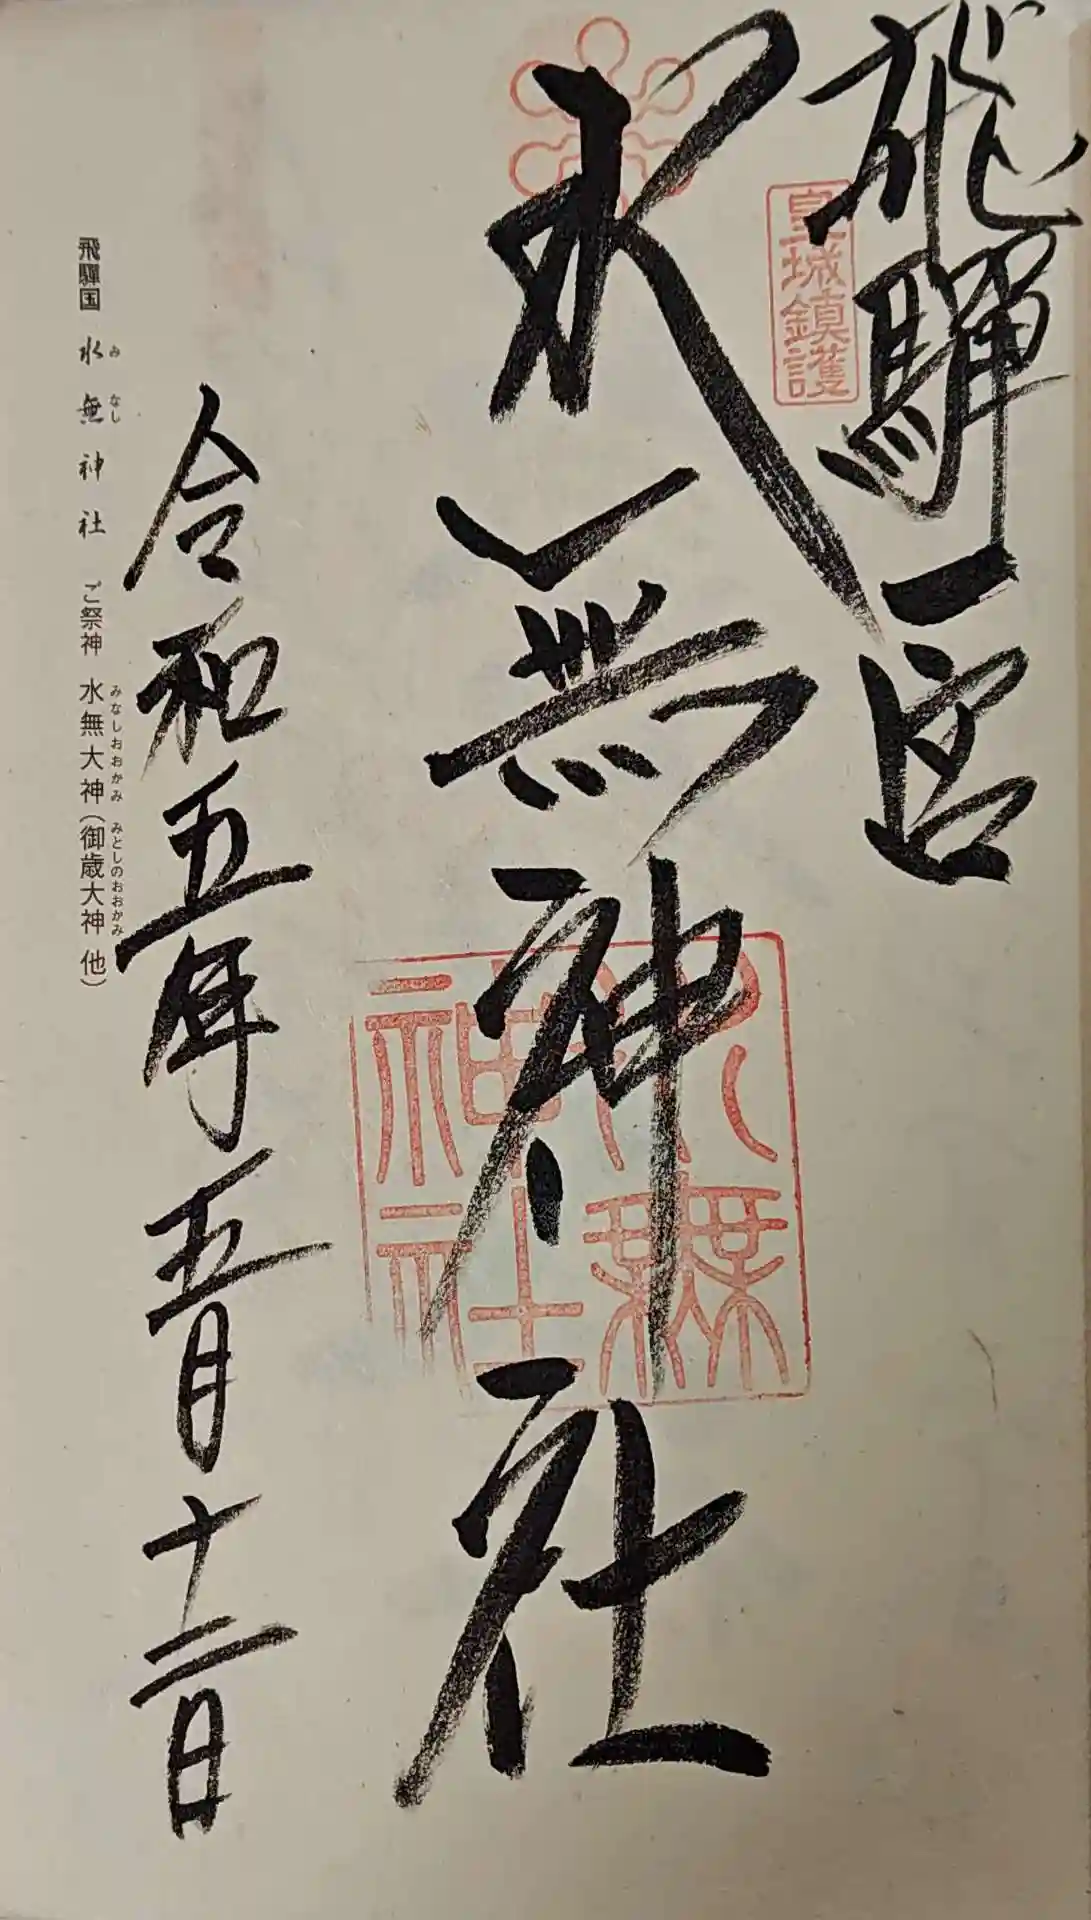 飛騨一宮
皇城鎮護
水無神社
水無神社
令和五年五月十二日
飛騨国 水無神社 ご祭神 水無大神(御歳大神 他)
み なし みなしおおかみ みとしのおおかみ